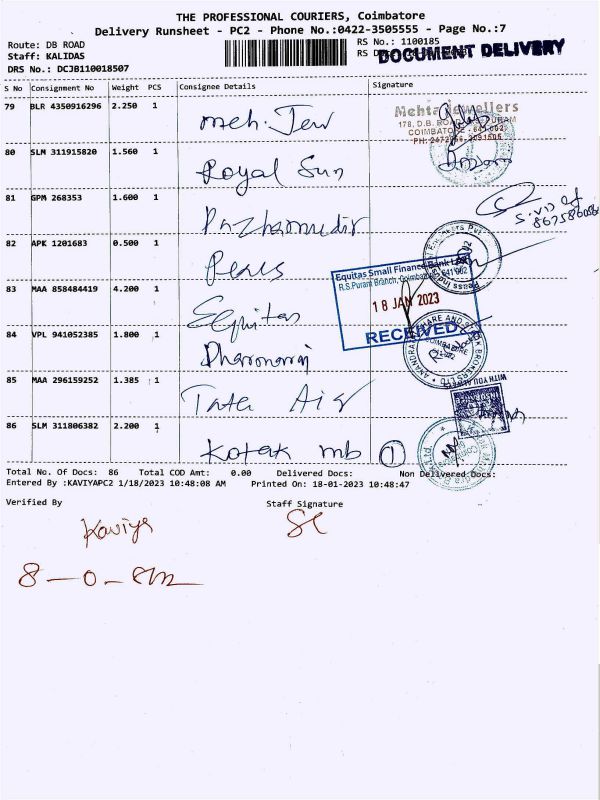 THE PROFESSIONAL COURIERS, Coimbatore
Delivery Runsheet - PC2 - Phone No.:0422-3505555 - Page No.:7
Route: DB ROAD
RS No.: 1100185
Staff: KALIDAS
RS
DOCUMENT DELIVERY
DRS No.: DCJB110018507
S No Consignment No Weight PCS Consignee Details Signature
79 BLR 4350916296 2.250 1 meh. Jew
Mehta Jewellers
COIMBATORE - 641 002
80 SLM 311915820 1.560 1 Royal Sun
81 GPM 268353 1.600 1 Pazhamudir
82 APK 1201683 0.500 1
Equitas Small Finance Bank Ltd
R.S.Puram Branch, Coimbatore, 641 002
18 JAN 2023
RECEIVED
83 MAA 858484419 4.200 1 Equitas
84 VPL 941052385 1.800 1
85 MAA 296159252 1.385 1 Tata Aig
WITH YOU ALWAYS
86 SLM 311806382 2.200 1 Kotak mb 1
Total No. Of Docs: 86 Total COD Amt: 0.00 Delivered Docs: Non Delivered Docs:
Entered By :KAVIYAPC2 1/18/2023 10:48:08 AM Printed On: 18-01-2023 10:48:47
Verified By Staff Signature
Kaviya